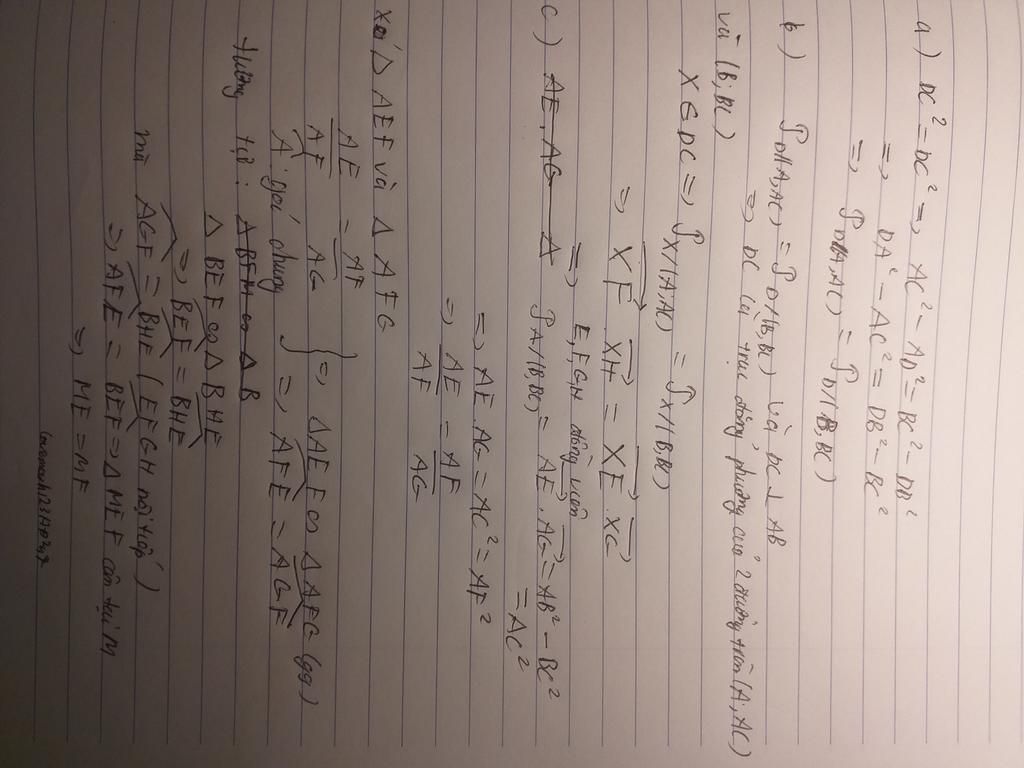 a) DC² = DC² => AC² - AD² = BC² - DB²
=> DA² - AC² = DB² - BC²
=> P D/(A,AC) = P D/(B,BC)
b) P D/(A,AC) = P D/(B,BC) và DC ⊥ AB
=> DC là trục đẳng phương của 2 đường tròn (A;AC)
và (B;BC)
X ∈ DC => P X/(A,AC) = P X/(B,BC)
=> XF . XH = XE . XG
=> E,F,G,H đồng viên
c) AE . AG = A
P A/(B,BC) = AE . AG = AB² - BC²
= AC²
=> AE . AG = AC² = AF²
=> AE/AF = AF/AG
Xét Δ AEF và Δ AFG
AE/AF = AF/AG
A góc chung } => ΔAEF ∽ ΔAFG (gg)
=> AFE = AGF
Tương tự: Δ BEH ∽ Δ B
Δ BEF ∽ Δ BHE
=> BEF = BHE
mà AGF = BHE (EFGH nội tiếp)
=> AFE = BEF => Δ MEF cân tại M
=> ME = MF